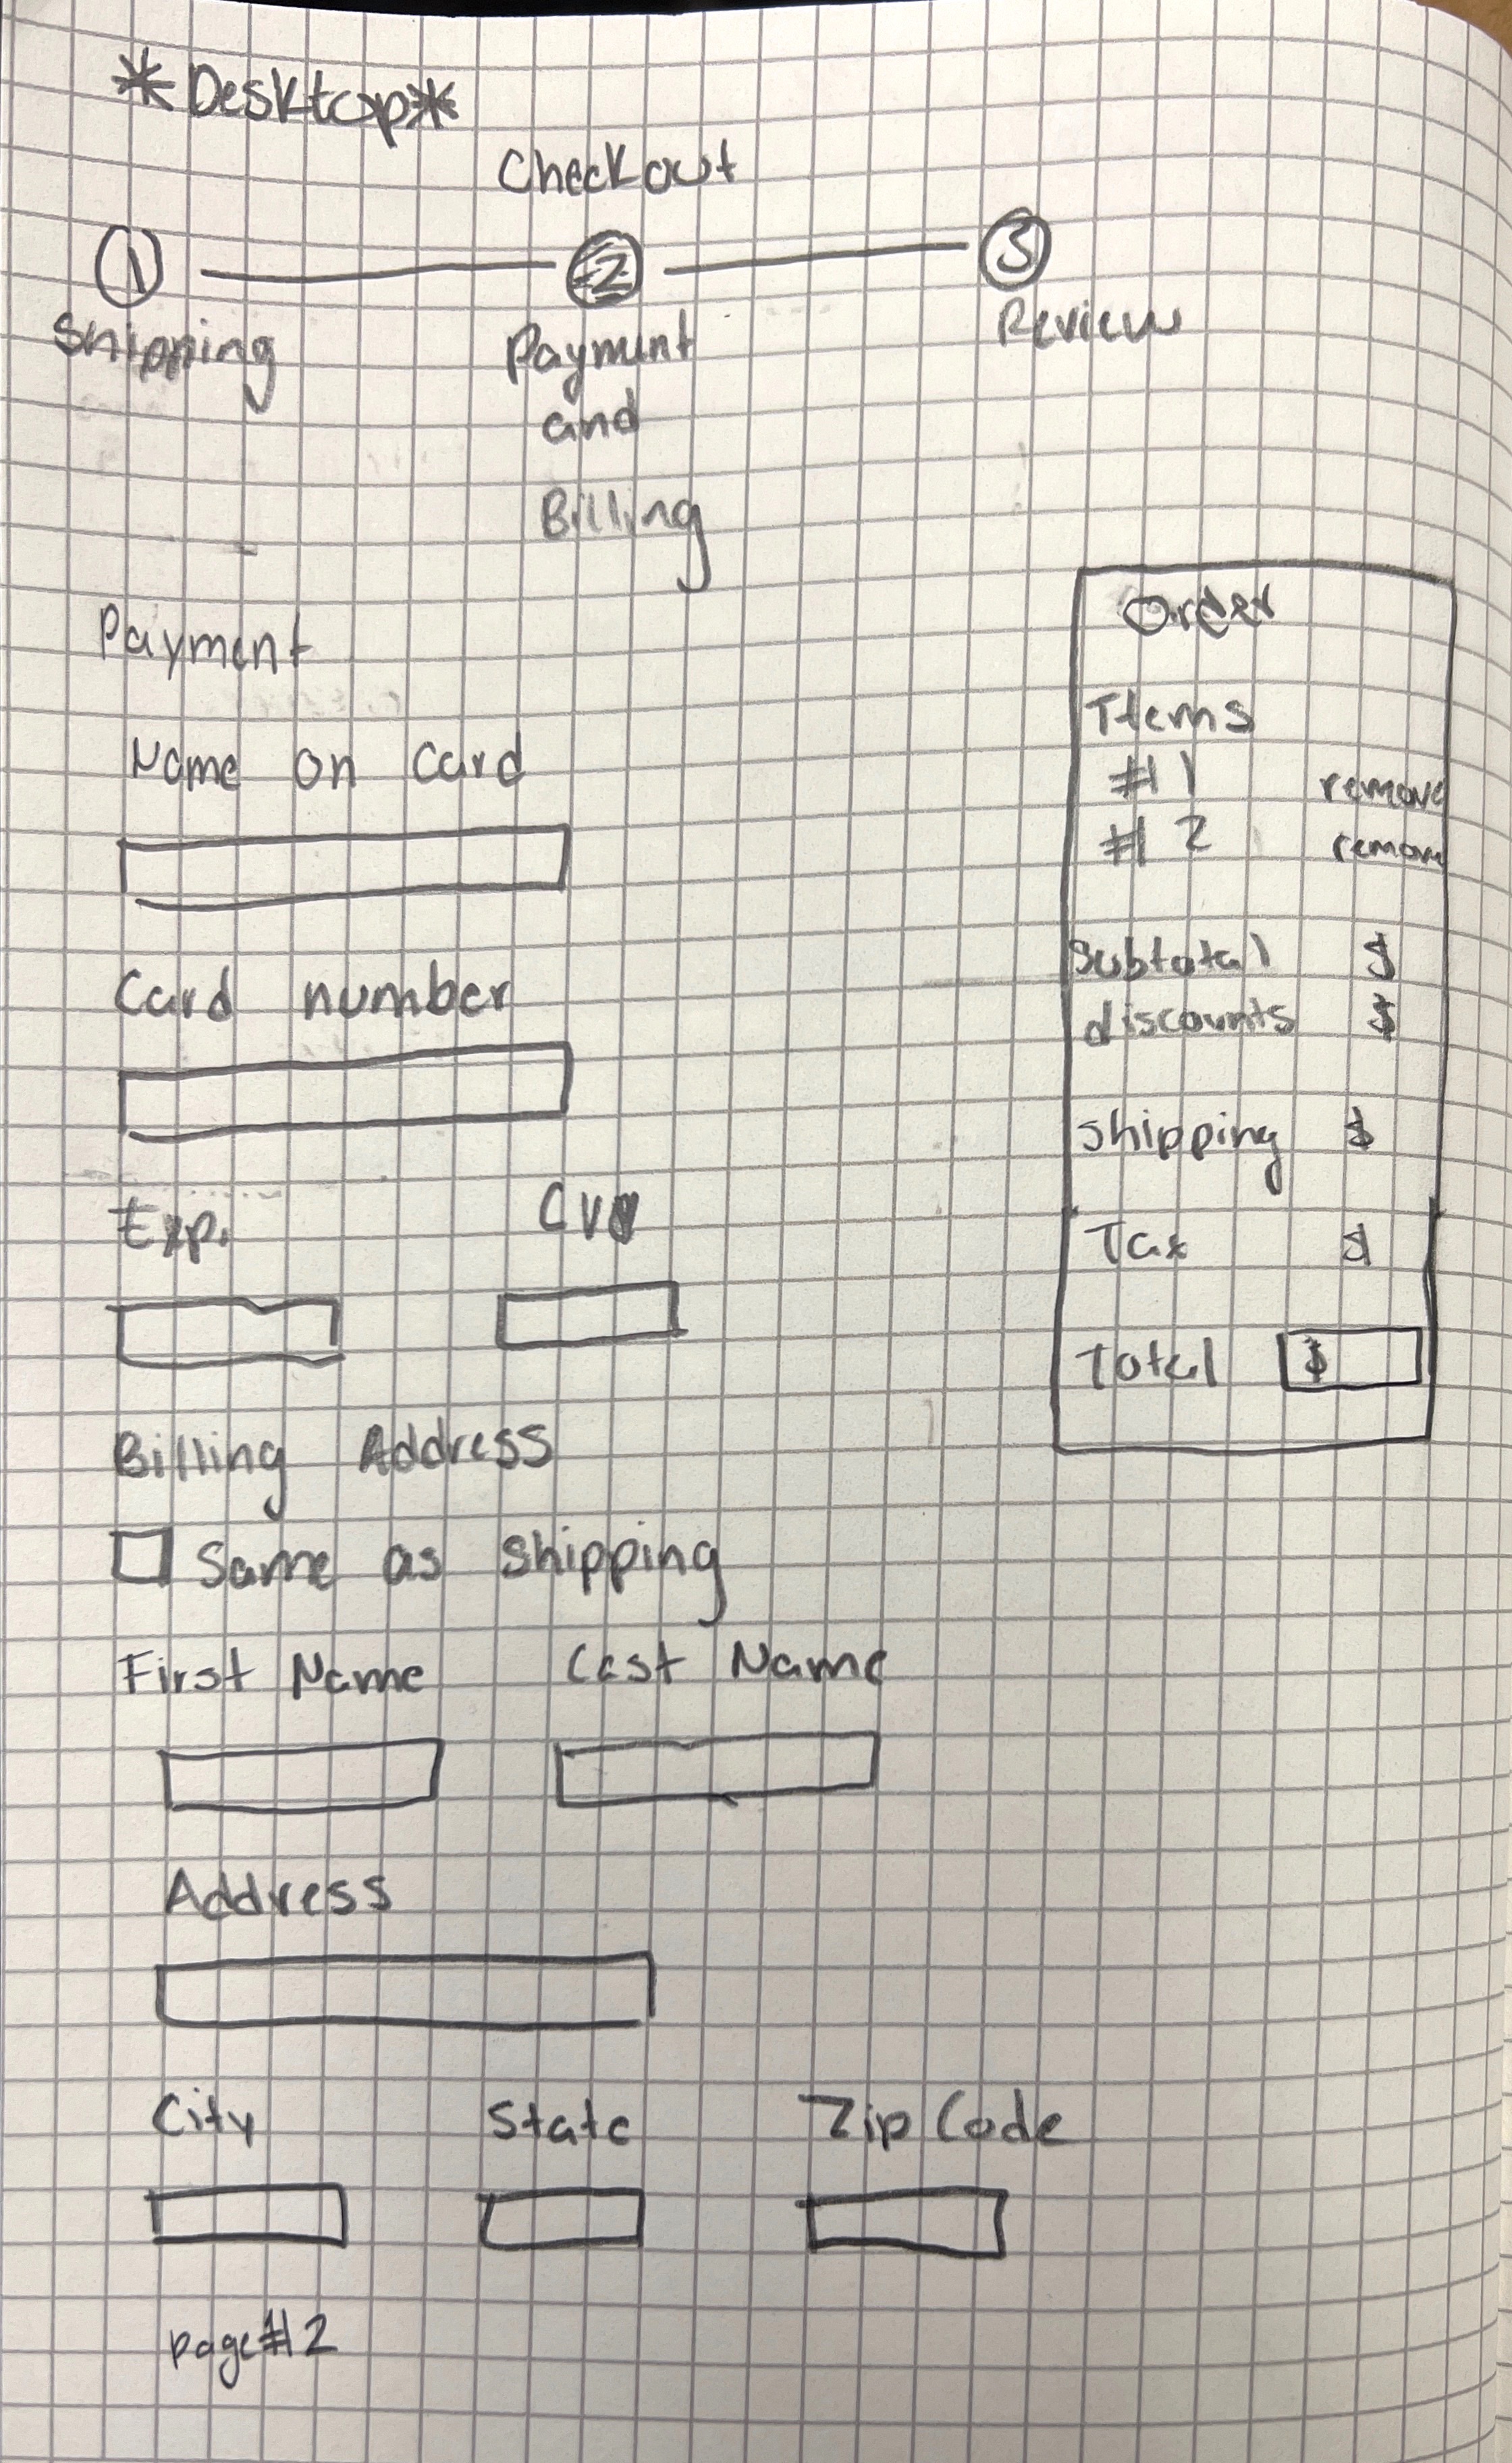 *Desktop*
Checkout
1 2 3
Shipping Payment and Billing Review
Payment
Name on Card
Card number
Exp. CVV
Billing Address
Same as Shipping
First Name Last Name
Address
City State Zip Code
page#2
Order
Items
#1 remove
#2 remove
Subtotal $
discounts $
shipping $
Tax $
Total $